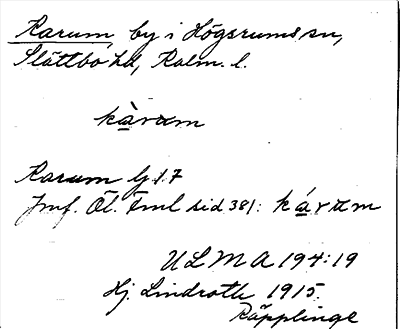 Karum by i Högsrums sn,
Slättbo hd, Kalm. l.
kàrum
Karum Lj 1.7
Jmf. Öl. Fml sid 381: kárum
ULMA 194:19
Hj. Lindroth 1915.
Räpplinge